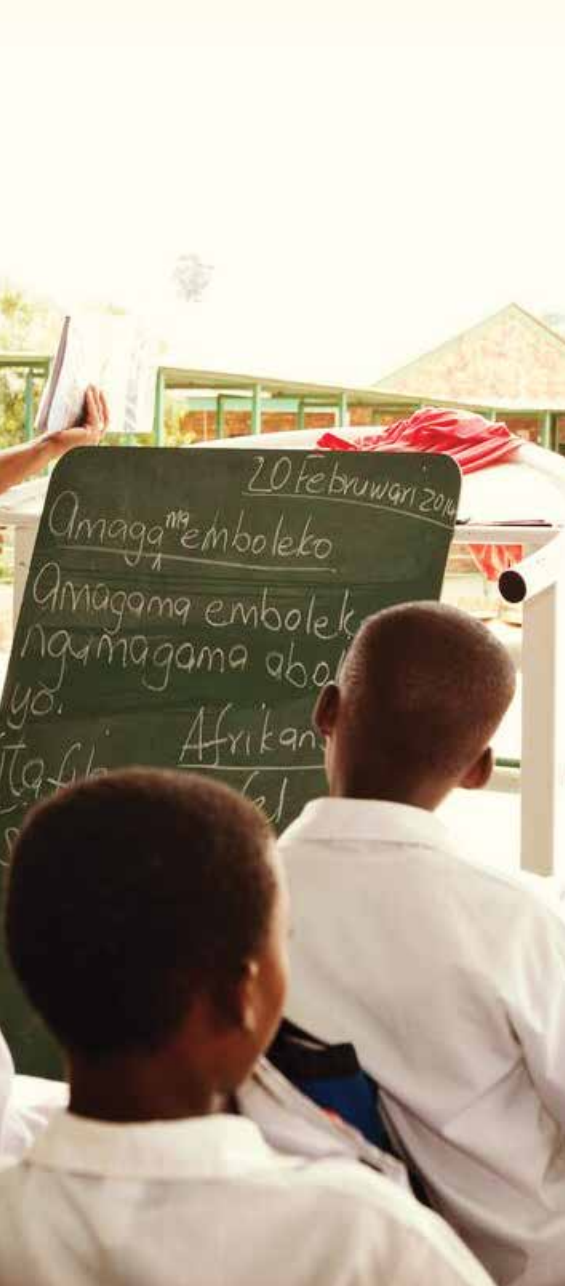 20 Februwari 2014
Amagama emboleko
Amagama embolek
ngamagama abo
yo.
Afrikan